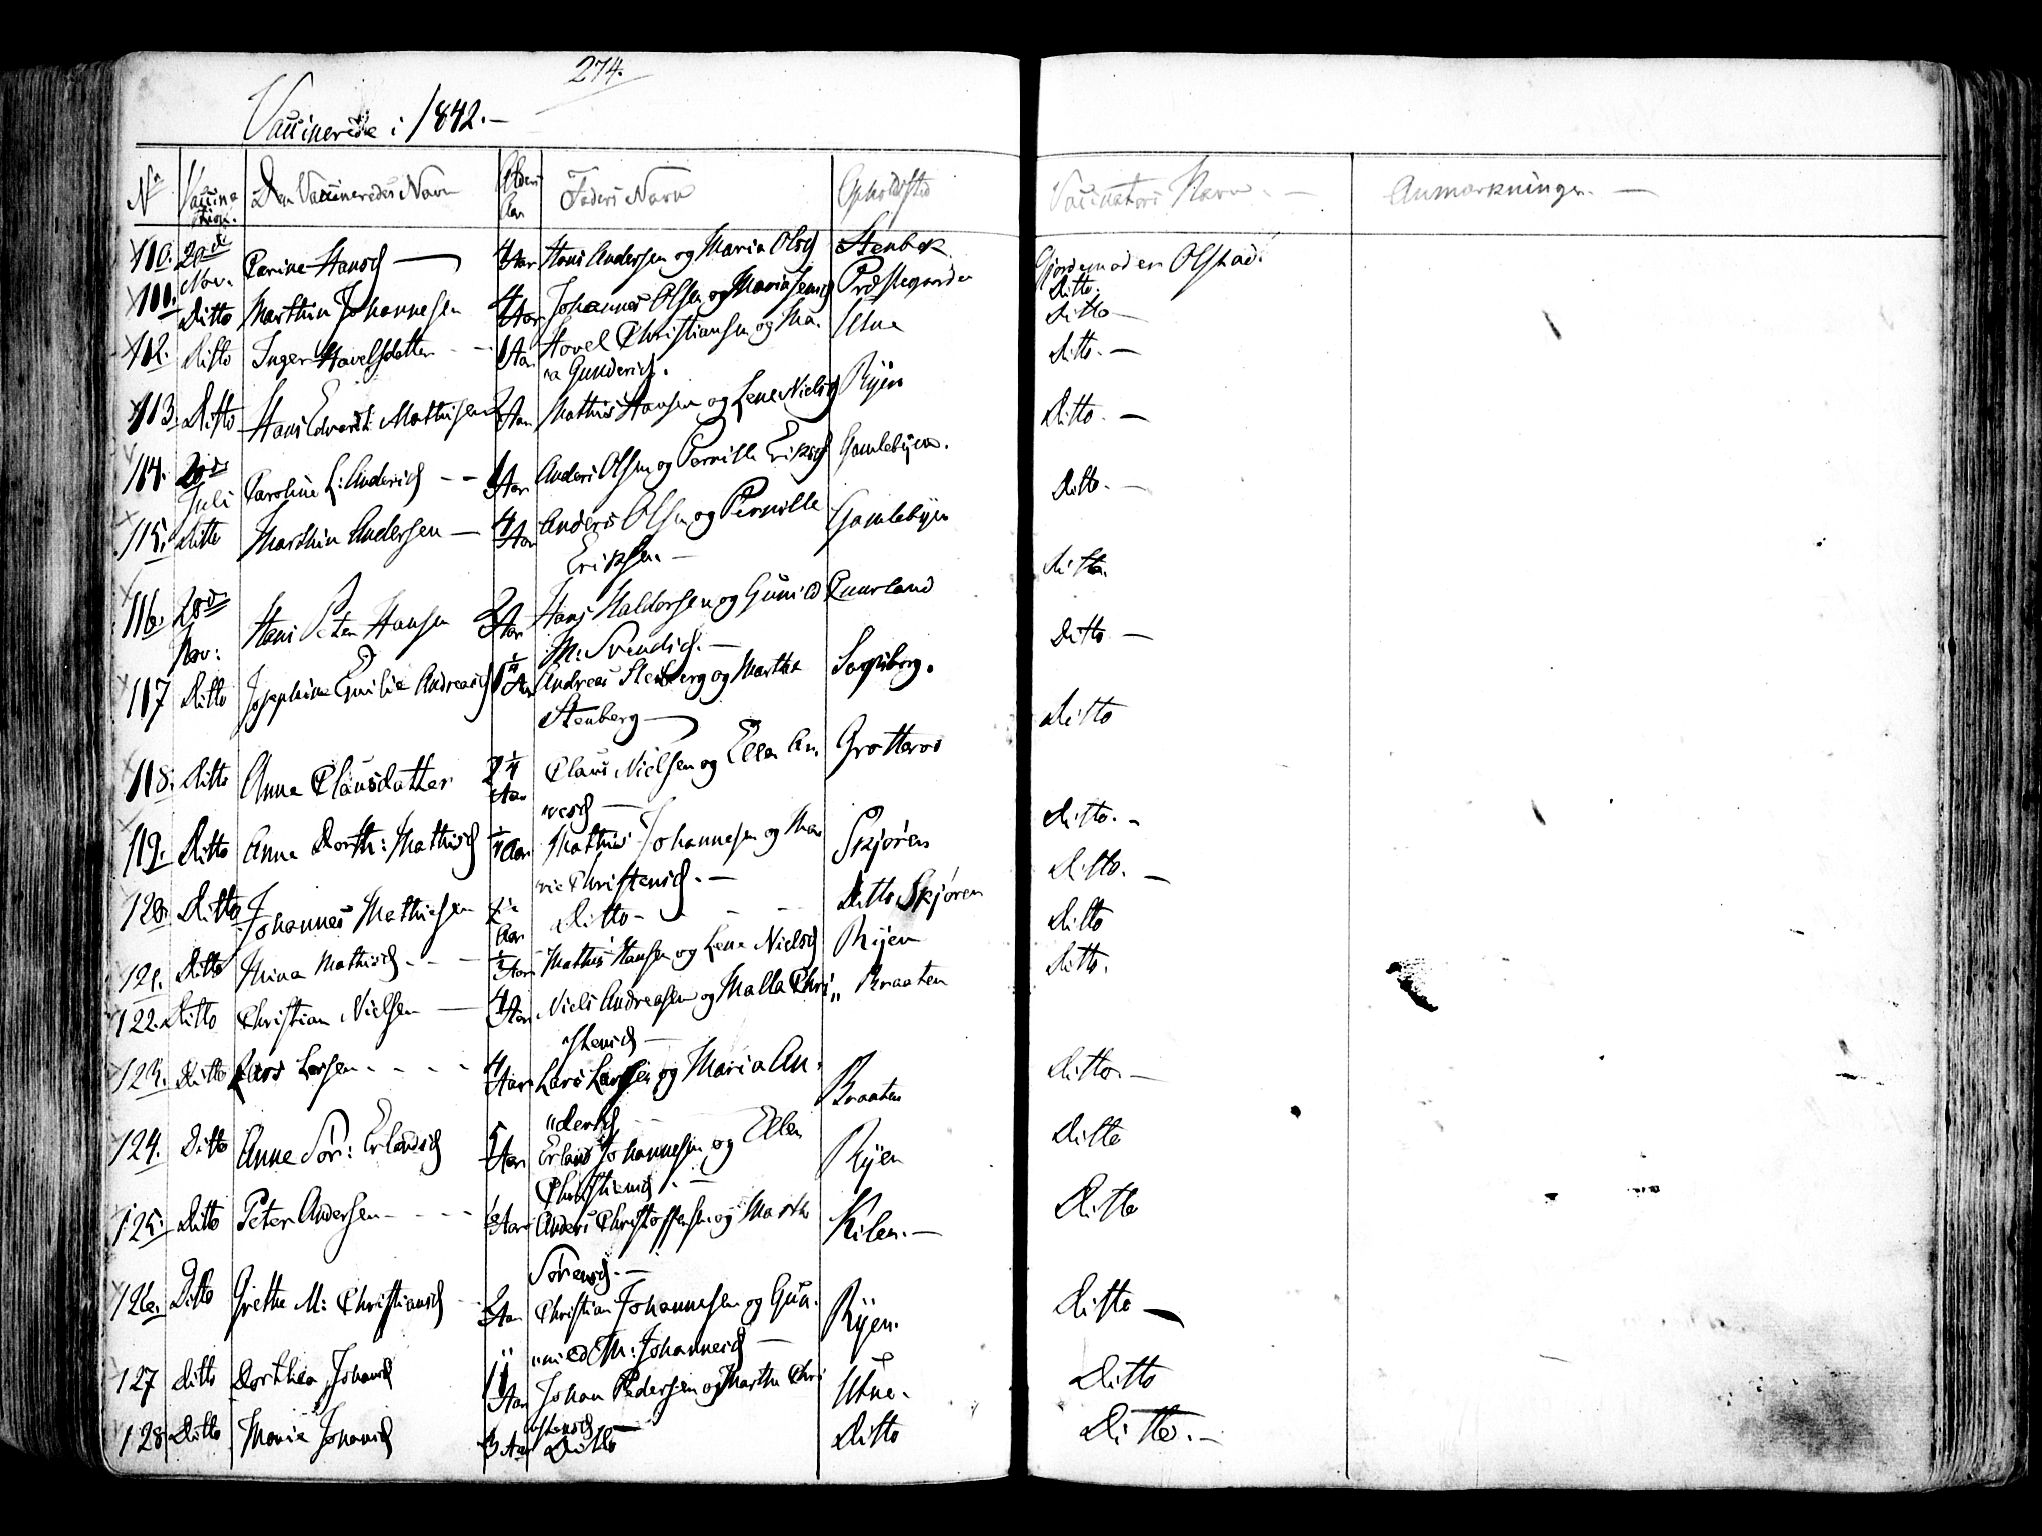 274.
Vaccinerede i 1842.-
No Vaccination. Den Vaccineredes Navn Alder Aar Faders Navn Opholdsted Vaccinators Navn. - Anmærkninger. -
110. 20de Nov. Carine Hansd — 4 Aar Hans Andersen og Maria Olsd Stenbek Gjordemoder Olstad.
Ditto.
111. Ditto Marthin Johannesen 4 Aar Johannes Olsen og Maria Præstegaarden Ditto -
112. Ditto Inger Havelsdatter - - 1 Aar Hovel Christiansen og Ma- Utne Ditto. -
ria Gundersd.
113. Ditto Hans Edvard Mathisen 2 Aar Mathis Hansen og Lene Nielsd Ryen Ditto. -
114. 20de Juli Caroline L: Andersd - - Aar Anders Olsen og Pernille Eriksd Gamlebyen. Ditto. -
115. Ditto Marthin Andersen - 4 Aar Anders Olsen og Pernille Gamlebyen Ditto.
Eriksen. -
116. 28de Nov: Hans Peter Hansen 2 Aar Hans Haldorsen og Gunild Quurland Ditto -
M: Svendsd. -
117 Ditto Josephine Emilie Andreasd 1 1/4 Aar Andreas Stenberg og Marthe Sarpsborg. Ditto
Stenberg —
118. Ditto Anne Clausdatter 2 1/4 Aar Claus Nielsen og Ellen An- Grotterød Ditto. -
dresd —
119. Ditto Anne Dorth: Mathisd 1/4 Aar Mathis Johannesen og Ma- Skjøren Ditto. -
rie Christensd. -
120. Ditto Johannes Mathiesen Aar Ditto - - - Ditto Skjøren Ditto
121. Ditto Mina Mathisd. - - Aar Mathis Hansen og Lene Nielsd Ryen Ditto.
122. Ditto Christian Nielsen — 4 Aar Niels Andreasen og Malla Chri- „ Braaten
stensd —
123. Ditto Lars Larsen - - - - 4 Aar Lars Larsen og Maria An- Braaten Ditto. -
„dersd
124. Ditto Anne Sør: Erlandsd 5 Aar Erland Johannesen og Ellen Ryen Ditto
Christiansd. -
125. Ditto Peter Andersen - - - - Aar Anders Christoffersen og Marthe Kilen. - Ditto
Sørensd. -
126. Ditto Grethe M: Christiansd 2 Aar Christian Johannesen og Gun- Ryen. Ditto —
„ild M: Johannesd —
127 Ditto Dorthea Johansd 11 Aar Johan Pedersen og Marthe Chri Utne. Ditto
stensd
128 Ditto Marie Johansd 3 Aar Ditto Ditto Ditto. -